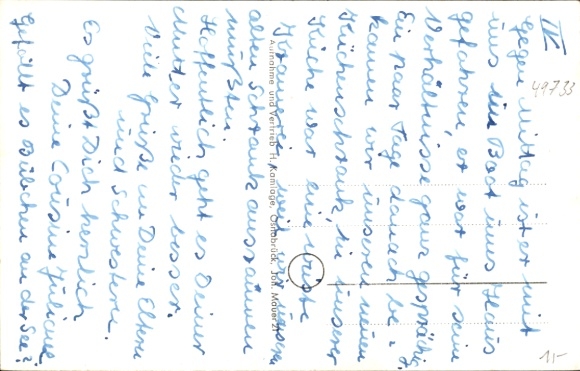 IV
Gegen Mittag ist er mit
uns im Boot ins Haus
gefahren er war für sein
Verhältnisse ganz gesprächig.
Ein paar Tage danach be-
kamen wir unseren neuen
Küchenschrank, in unsrer
Küche war ein wüste
weil wir unsern
alten Schrank ausräumen
mußten.
Hoffentlich geht es Deiner
Mutter wieder besser.
Viele Grüße an Deine Eltern
und Schwestern.
Es grüßt Dich herzlich
Deine Cousine Juliane
Gefällt es Bübchen an der See?
Aufnahme und Vertrieb H. Kamlage, Osnabrück, Joh. Mauer 21
49733
1,-